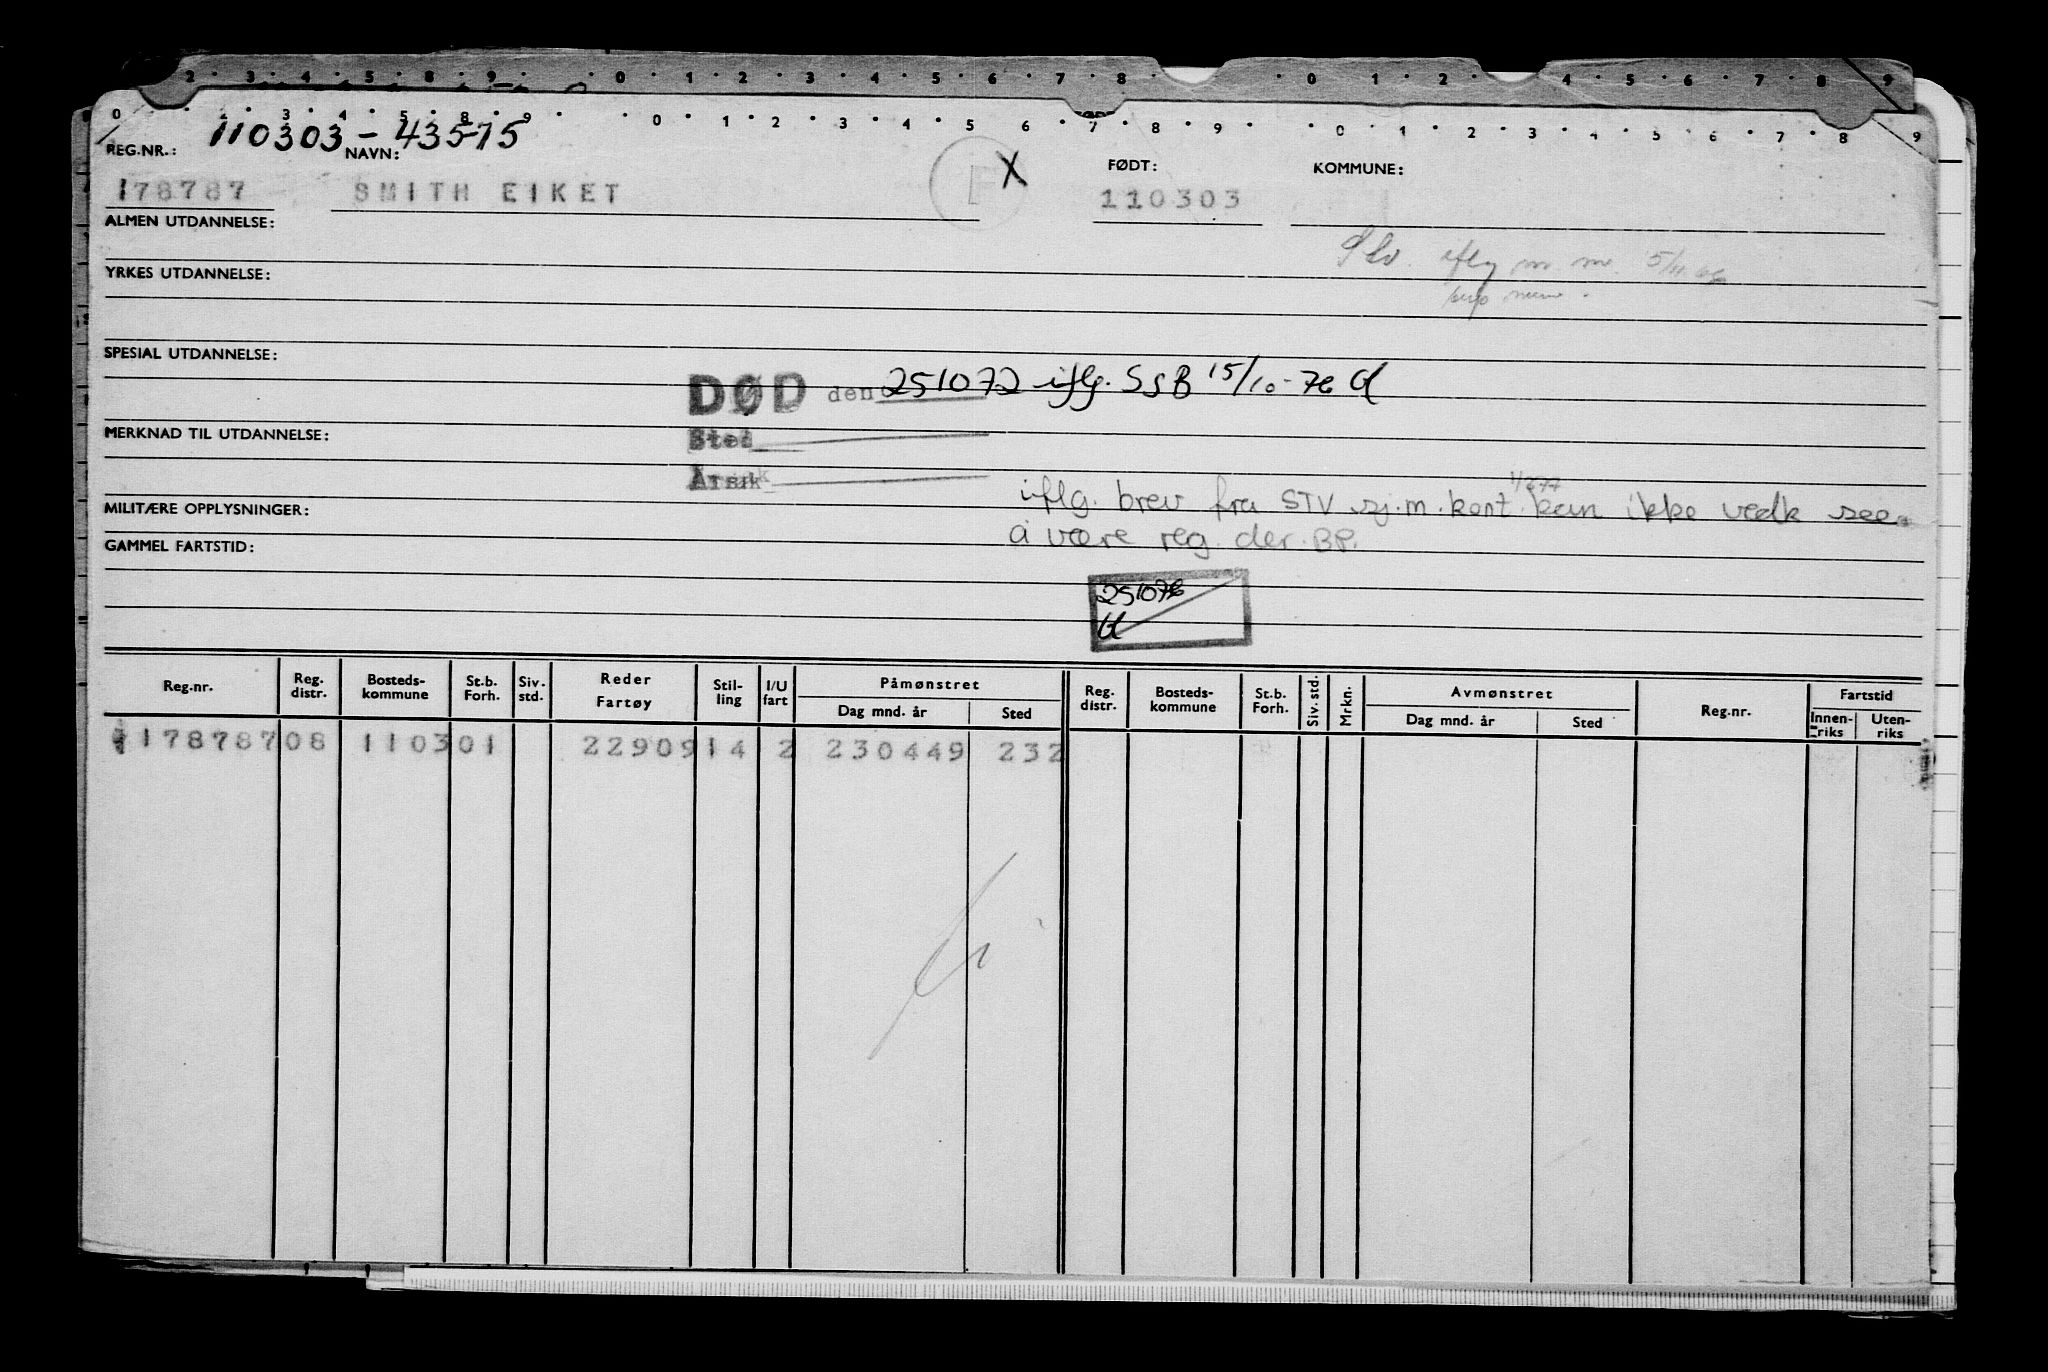 2 3 4 5 8 9 0 1 2 3 4 5 6 7 8 0 1 2 4 5 6 7 8 9
0 2 3 4 5 8 9 0 1 2 3 4 5 6 7 8 9 0 1 2 3 4 5 6 7 8 9
110303-43515
REG.NR.: NAVN: FØDT: KOMMUNE:
178787 SMITH EIKET X 110303
ALMEN UTDANNELSE:
iflg m. m. 5/11 66
YRKES UTDANNELSE:
SPESIAL UTDANNELSE:
DØD den 251072 iflg. SSB 15/10-76 Cl
MERKNAD TIL UTDANNELSE: Sted
Årsak
1/277
MILITÆRE OPPLYSNINGER: iflg. brev fra STV sj.m.kont. kan ikke vedk see
å være reg. der. BP.
GAMMEL FARTSTID:
251076
Cl
Reg.nr. Reg. distr. Bosteds-kommune St.b. Forh. Siv. std. Reder Fartøy Stil-ling I/U fart Påmønstret Dag mnd. år Sted Reg. distr. Bosteds-kommune St.b. Forh. Siv. std. Mrkn. Avmønstret Dag mnd. år Sted Reg.nr. Fartstid Innen-riks Uten-riks
178787 08 110301 22909 14 2 230449 232